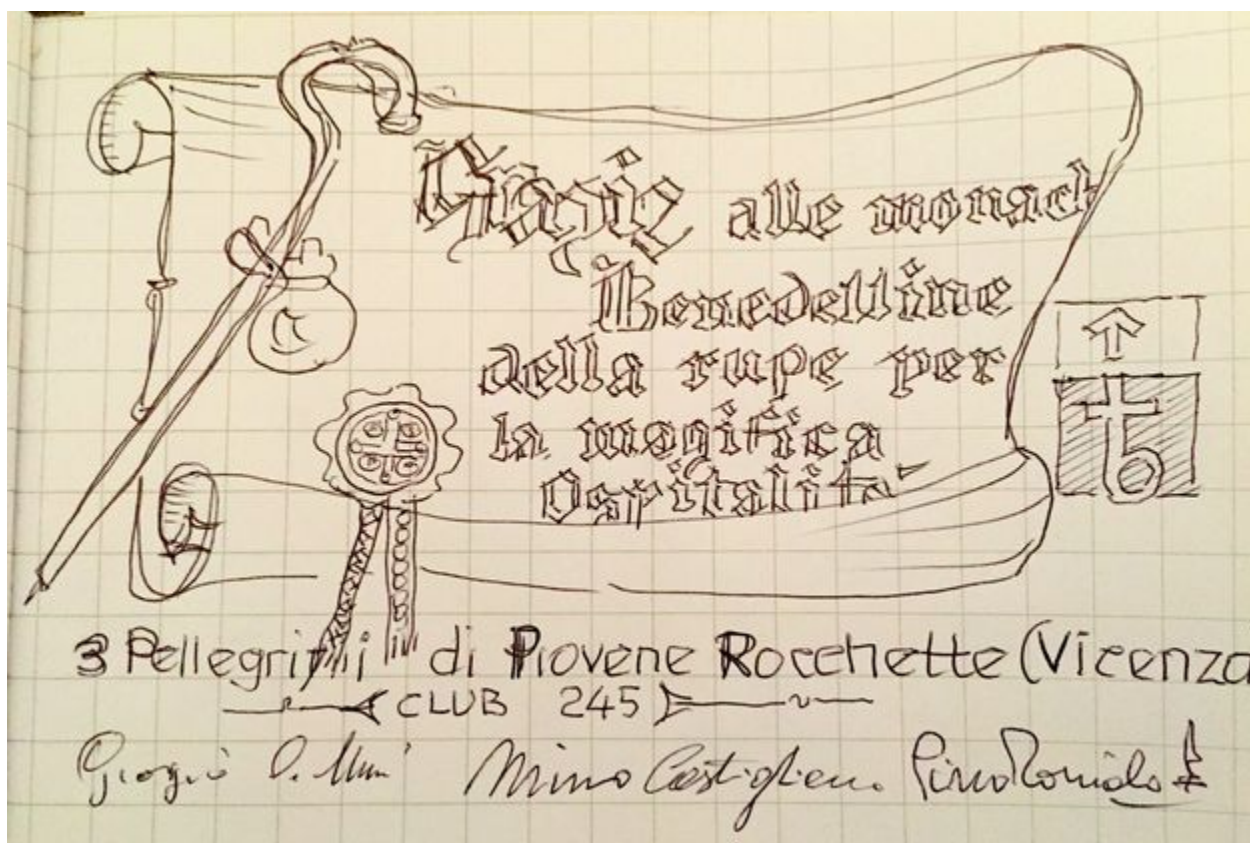 Grazie alle monach
Benedettine
della rupe per
la magifica
Ospitalità
3 Pellegrini di Piovene Rocchette (Vicenza
CLUB 245
Giorgio
Mino